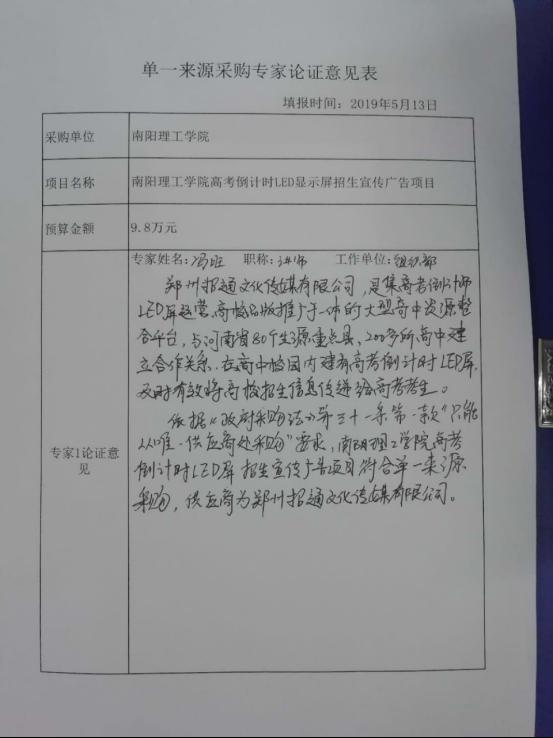 单一来源采购专家论证意见表
填报时间：2019年5月13日
采购单位 南阳理工学院
项目名称 南阳理工学院高考倒计时LED显示屏招生宣传广告项目
预算金额 9.8万元
专家姓名：冯旺 职称：讲师 工作单位：组织部
郑州招通文化传媒有限公司，是集高考倒计时
LED屏运营、高校品牌推广于一体的大型高中资源整
合平台，与河南省80个生源重点县，200多所高中建
立合作关系，在高中校园内建有高考倒计时LED屏，
及时有效将高校招生信息传递给高考考生。
依据《政府采购法》第三十一条第一款“只能
从唯一供应商处采购”要求，南阳理工学院高考
倒计时LED屏招生宣传广告项目符合单一来源
采购，供应商为郑州招通文化传媒有限公司。
专家1论证意
见